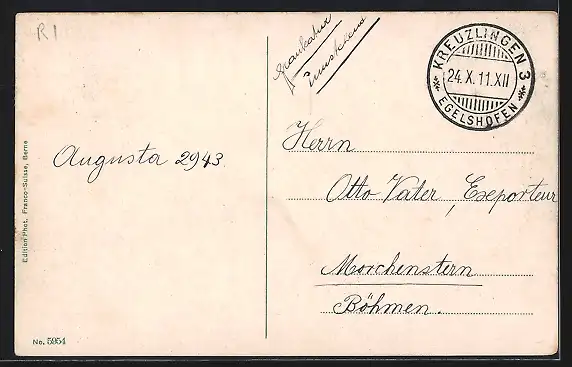 R1
KREUZLINGEN 3
24.X.11.XII
EGELSHOFEN
Herrn
Augusta 2943.
Otto Vater, Exeporteur
Morchenstern
Böhmen.
Edition Phot. Franco-Suisse, Berne
No. 5954